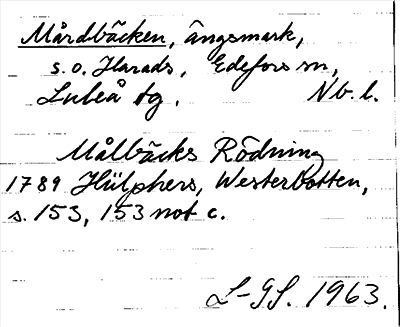 Mårdbäcken, ängsmark,
s.o. Harads, Edefors sn,
Luleå tg. Nb. l.
Målbäcks Rödning
1789 Hülphers, Westerbotten,
s. 153, 153 not c.
L-GS. 1963.